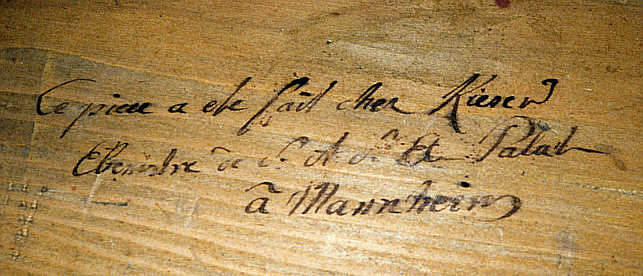 Ce piece a ete fait chez Kieser
Ebeniste de S. A. S. El Palat
à Mannheim